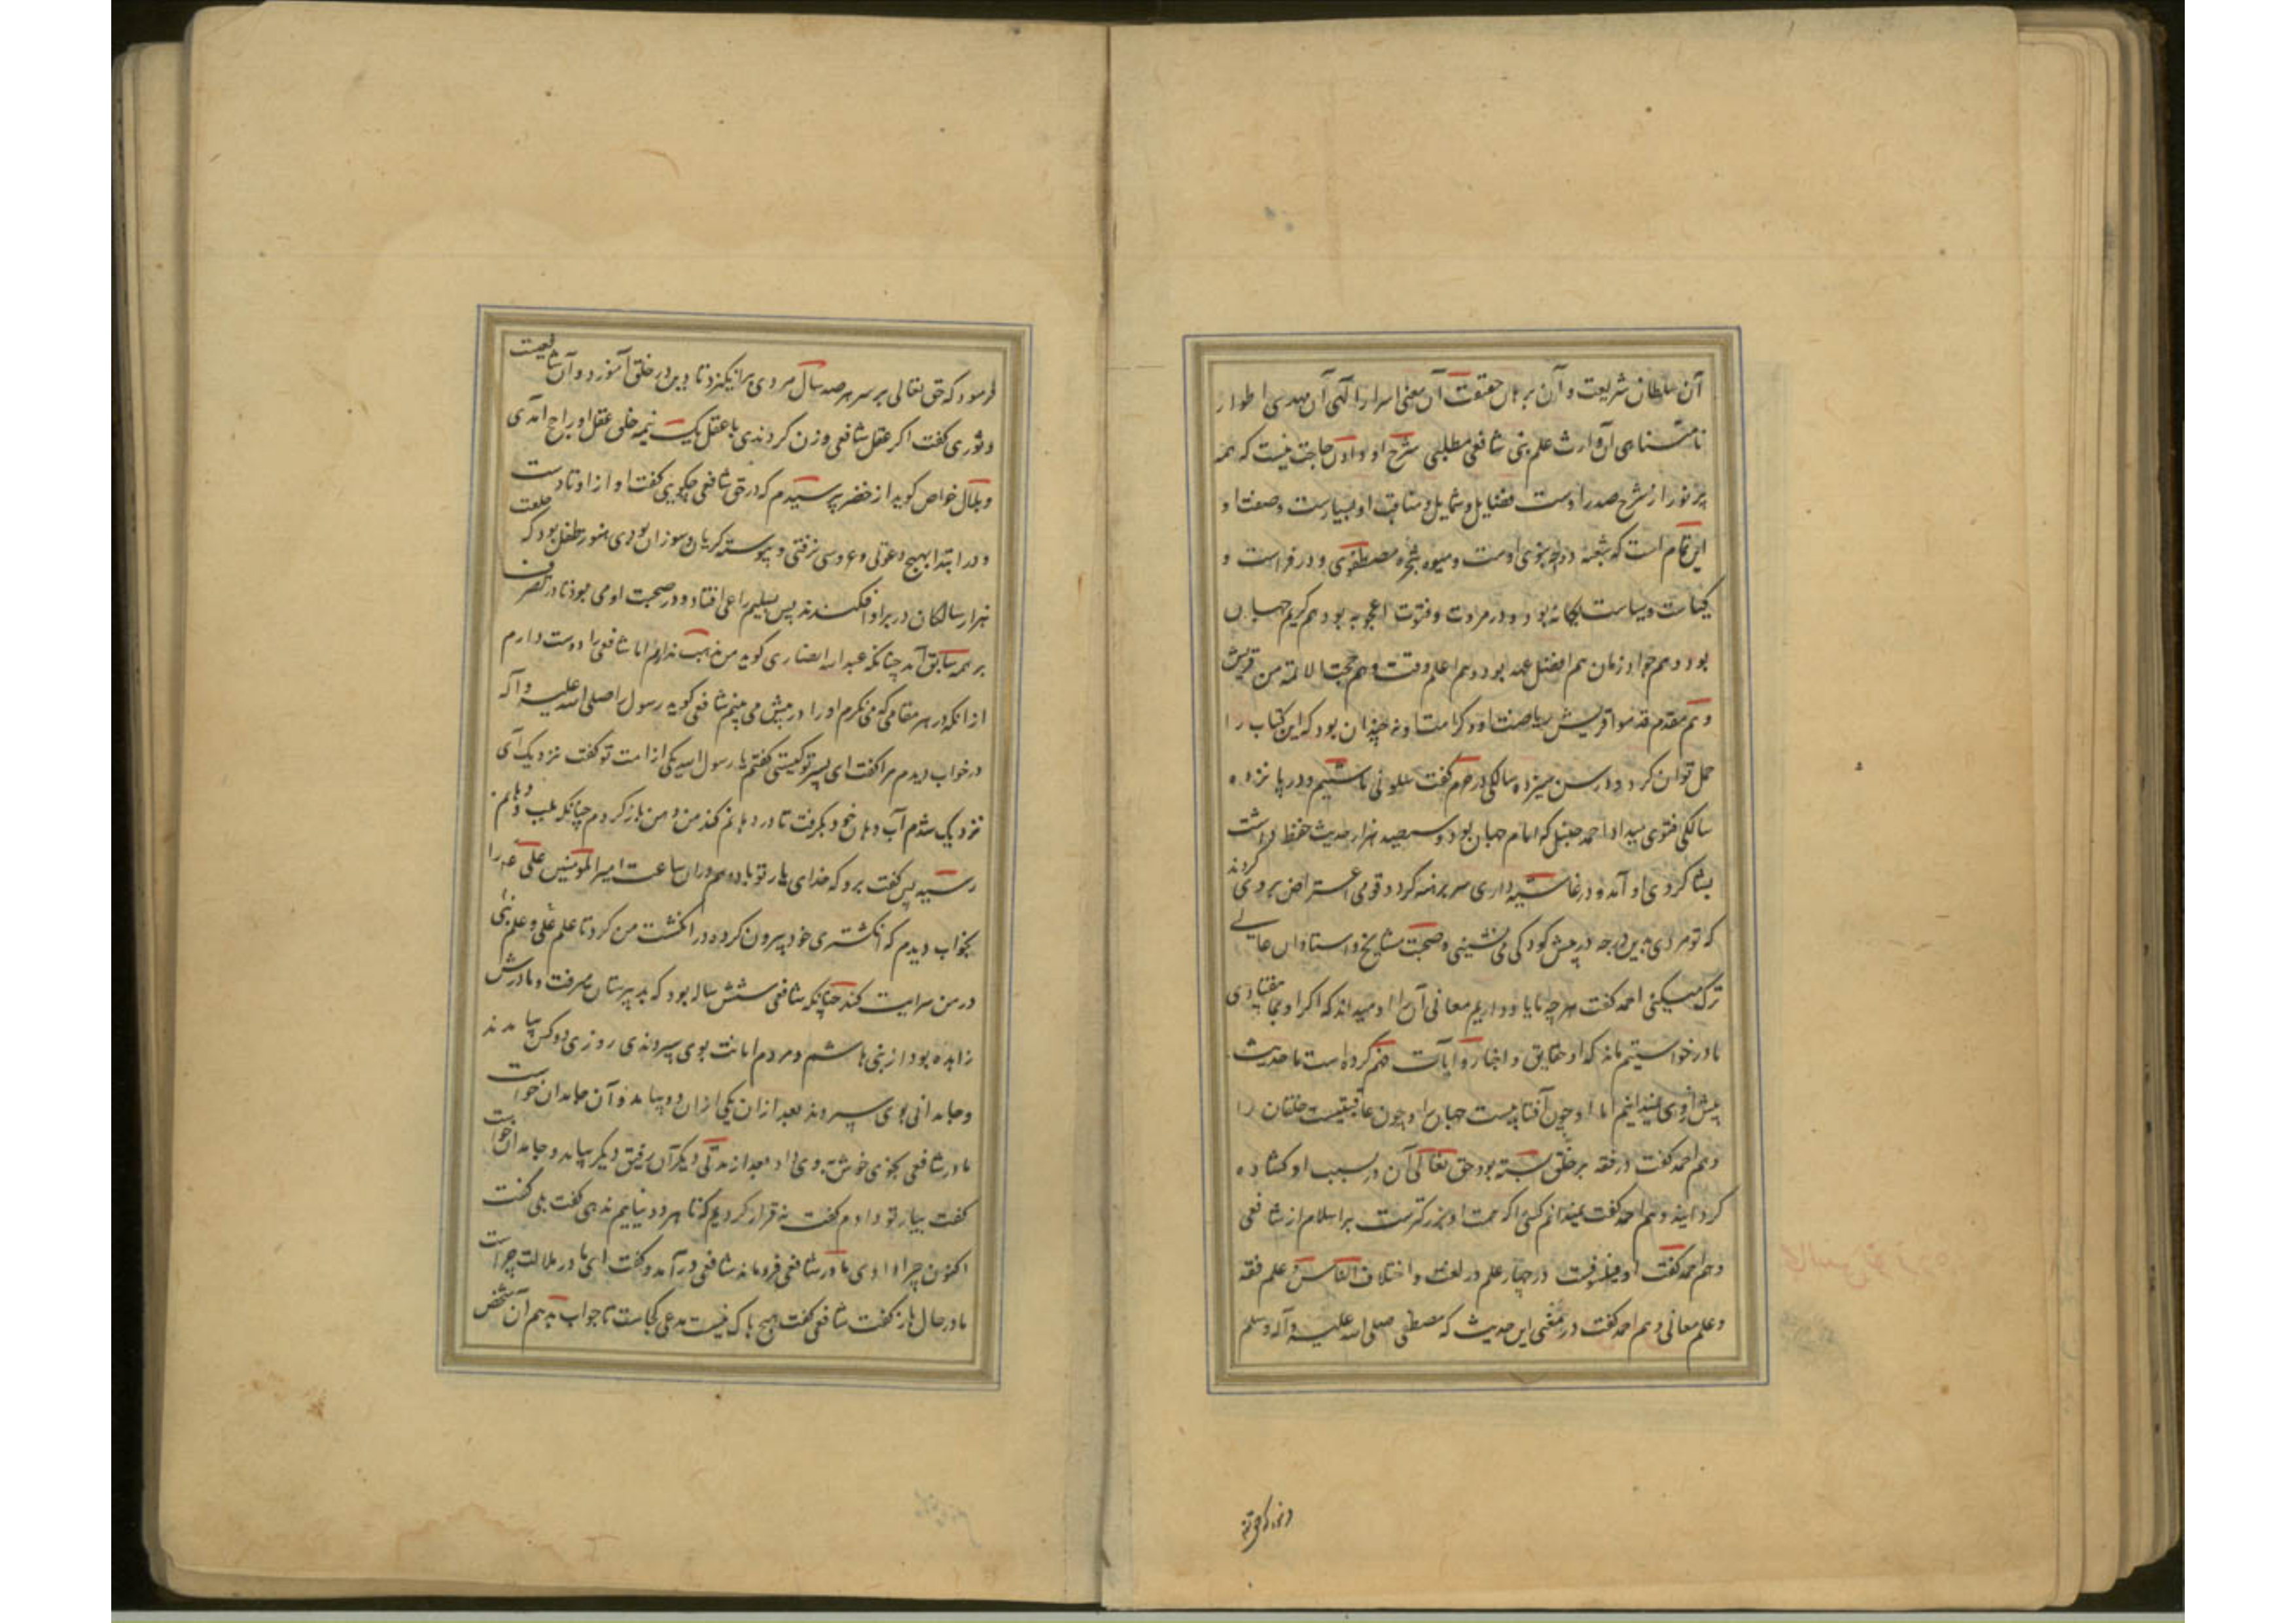 آن سلطان شریعت و آن برهان حقیقت آن مفتی اسرار الهی آن مهدی اطوار
نامتناهی آن وارث علم نبی شافعی مطلبی شرح او دادن حاجت نیست که همه
پر نور از شرح صدر اوست فضایل و شمایل و مناقب او بسیارست وصفت او
این تمام است که شعبه دوحه نبوی اوست و میوه شجره مصطفوی و در فراست و
کیاست و سیاست یگانه بود و در مروت و فتوت اعجوبه بود هم کریم جهان
بود و هم جواد زمان هم افضل عهد بود و هم اعلم وقت و هم حجت الائمة من قریش
و هم مقدم قدموا قریش ریاضت او و کرامت او نه چندان بود که این کتاب را
حمل توان کرد و در سن سیزده سالکی در حرم گفت سلونی ما شئتم و در پانزده
سالکی فتوی میداد احمد حنبل که امام جهان بود و سیصد هزار حدیث حفظ داشت
بشاکردی او آمد و در غاشیه داری سر برهنه کرد و قومی اعتراض بر وی کردند
که تو مردی بدین درجه در پیش کودکی می نشینی و صحبت مشایخ و استادان عالی
ترک میکنی احمد گفت هرچه ما یاد داریم معانی آن او میداند که اگر او بما نیفتادی
ما در خواستیم ماند که او حقایق و اخبار و آیات فهم کرده است ما حدیث
بیش از وی نمیدانیم اما او چون آفتابیست جهان را و چون عافیتیست خلقان را
و هم احمد گفت در فقه بر خلق بسته بود حق تعالی آن در بسبب او کشاده
کردانید و هم احمد گفت نمیدانم کسی را که منت او بزرکترست بر اسلام از شافعی
و هم احمد گفت او فیلسوفست در چهار علم در لغت و اختلاف الناس و علم فقه
و علم معانی و هم احمد گفت در معنی این حدیث که مصطفی صلی الله علیه و آله وسلم
فرمود که حق تعالی بر سر هر صد سال مردی برانکیزد تا دین در خلق آموزد و آن شافعیست
و ثوری گفت اکر عقل شافعی وزن کردندی با عقل یک نیمه خلق عقل او راجح آمدی
و بلال خواص کوید از خضر پرسیدم که در حق شافعی چکویی گفت او از اوتادست
و در ابتدا بهیچ دعوتی و عروسی نرفتی و پیوسته کریان و سوزان بودی هنوز طفل بود که خلعت
هزار سالکان در بر او افکندند پس بسلیم راعی افتاد و در صحبت او می بود تا در تصرف
بر همه سابق آمد چنانکه عبدالله انصاری کوید من مذهب ندارم اما شافعی را دوست دارم
از انکه در هر مقامی که می نکرم او را در پیش می بینم شافعی کوید رسول را صلی الله علیه و آله
در خواب دیدم مرا گفت ای پسر تو کیستی گفتم یا رسول الله یکی از امت تو گفت نزدیک آی
نزدیک شدم آب دهان خود بکرفت تا در دهانم کند من دهن باز کردم چنانکه بلب و دهانم
رسید پس گفت برو که خدای یار تو باد و هم دران ساعت امیر المؤمنین علی را
بخواب دیدم که انکشتری خود بیرون کرده در انکشت من کرد تا علم علی و علم نبی
در من سرایت کند چنانکه شافعی شش ساله بود که بدبیرستان میرفت و مادرش
زاهده بود از بنی هاشم و مردم امانت بوی سپردندی روزی دو کس بیامدند
و جامدانی بوی سپردند بعد از ان یکی از ان دو بیامد و آن جامدان خواست
مادر شافعی بخوی خوش بوی داد بعد از مدتی دیکر آن رفیق دیکر بیامد و جامدان خواست
گفت بیار تو دادم گفت نه قرار کردیم که تا هر دو نیاییم ندهی گفت بلی گفت
اکنون چرا دادی مادر شافعی فرو ماند شافعی در آمد و گفت ای مادر ملالت چراست
مادر حال باز گفت شافعی گفت هیچ باک نیست مدعی کجاست تا جواب بدهم آن شخص